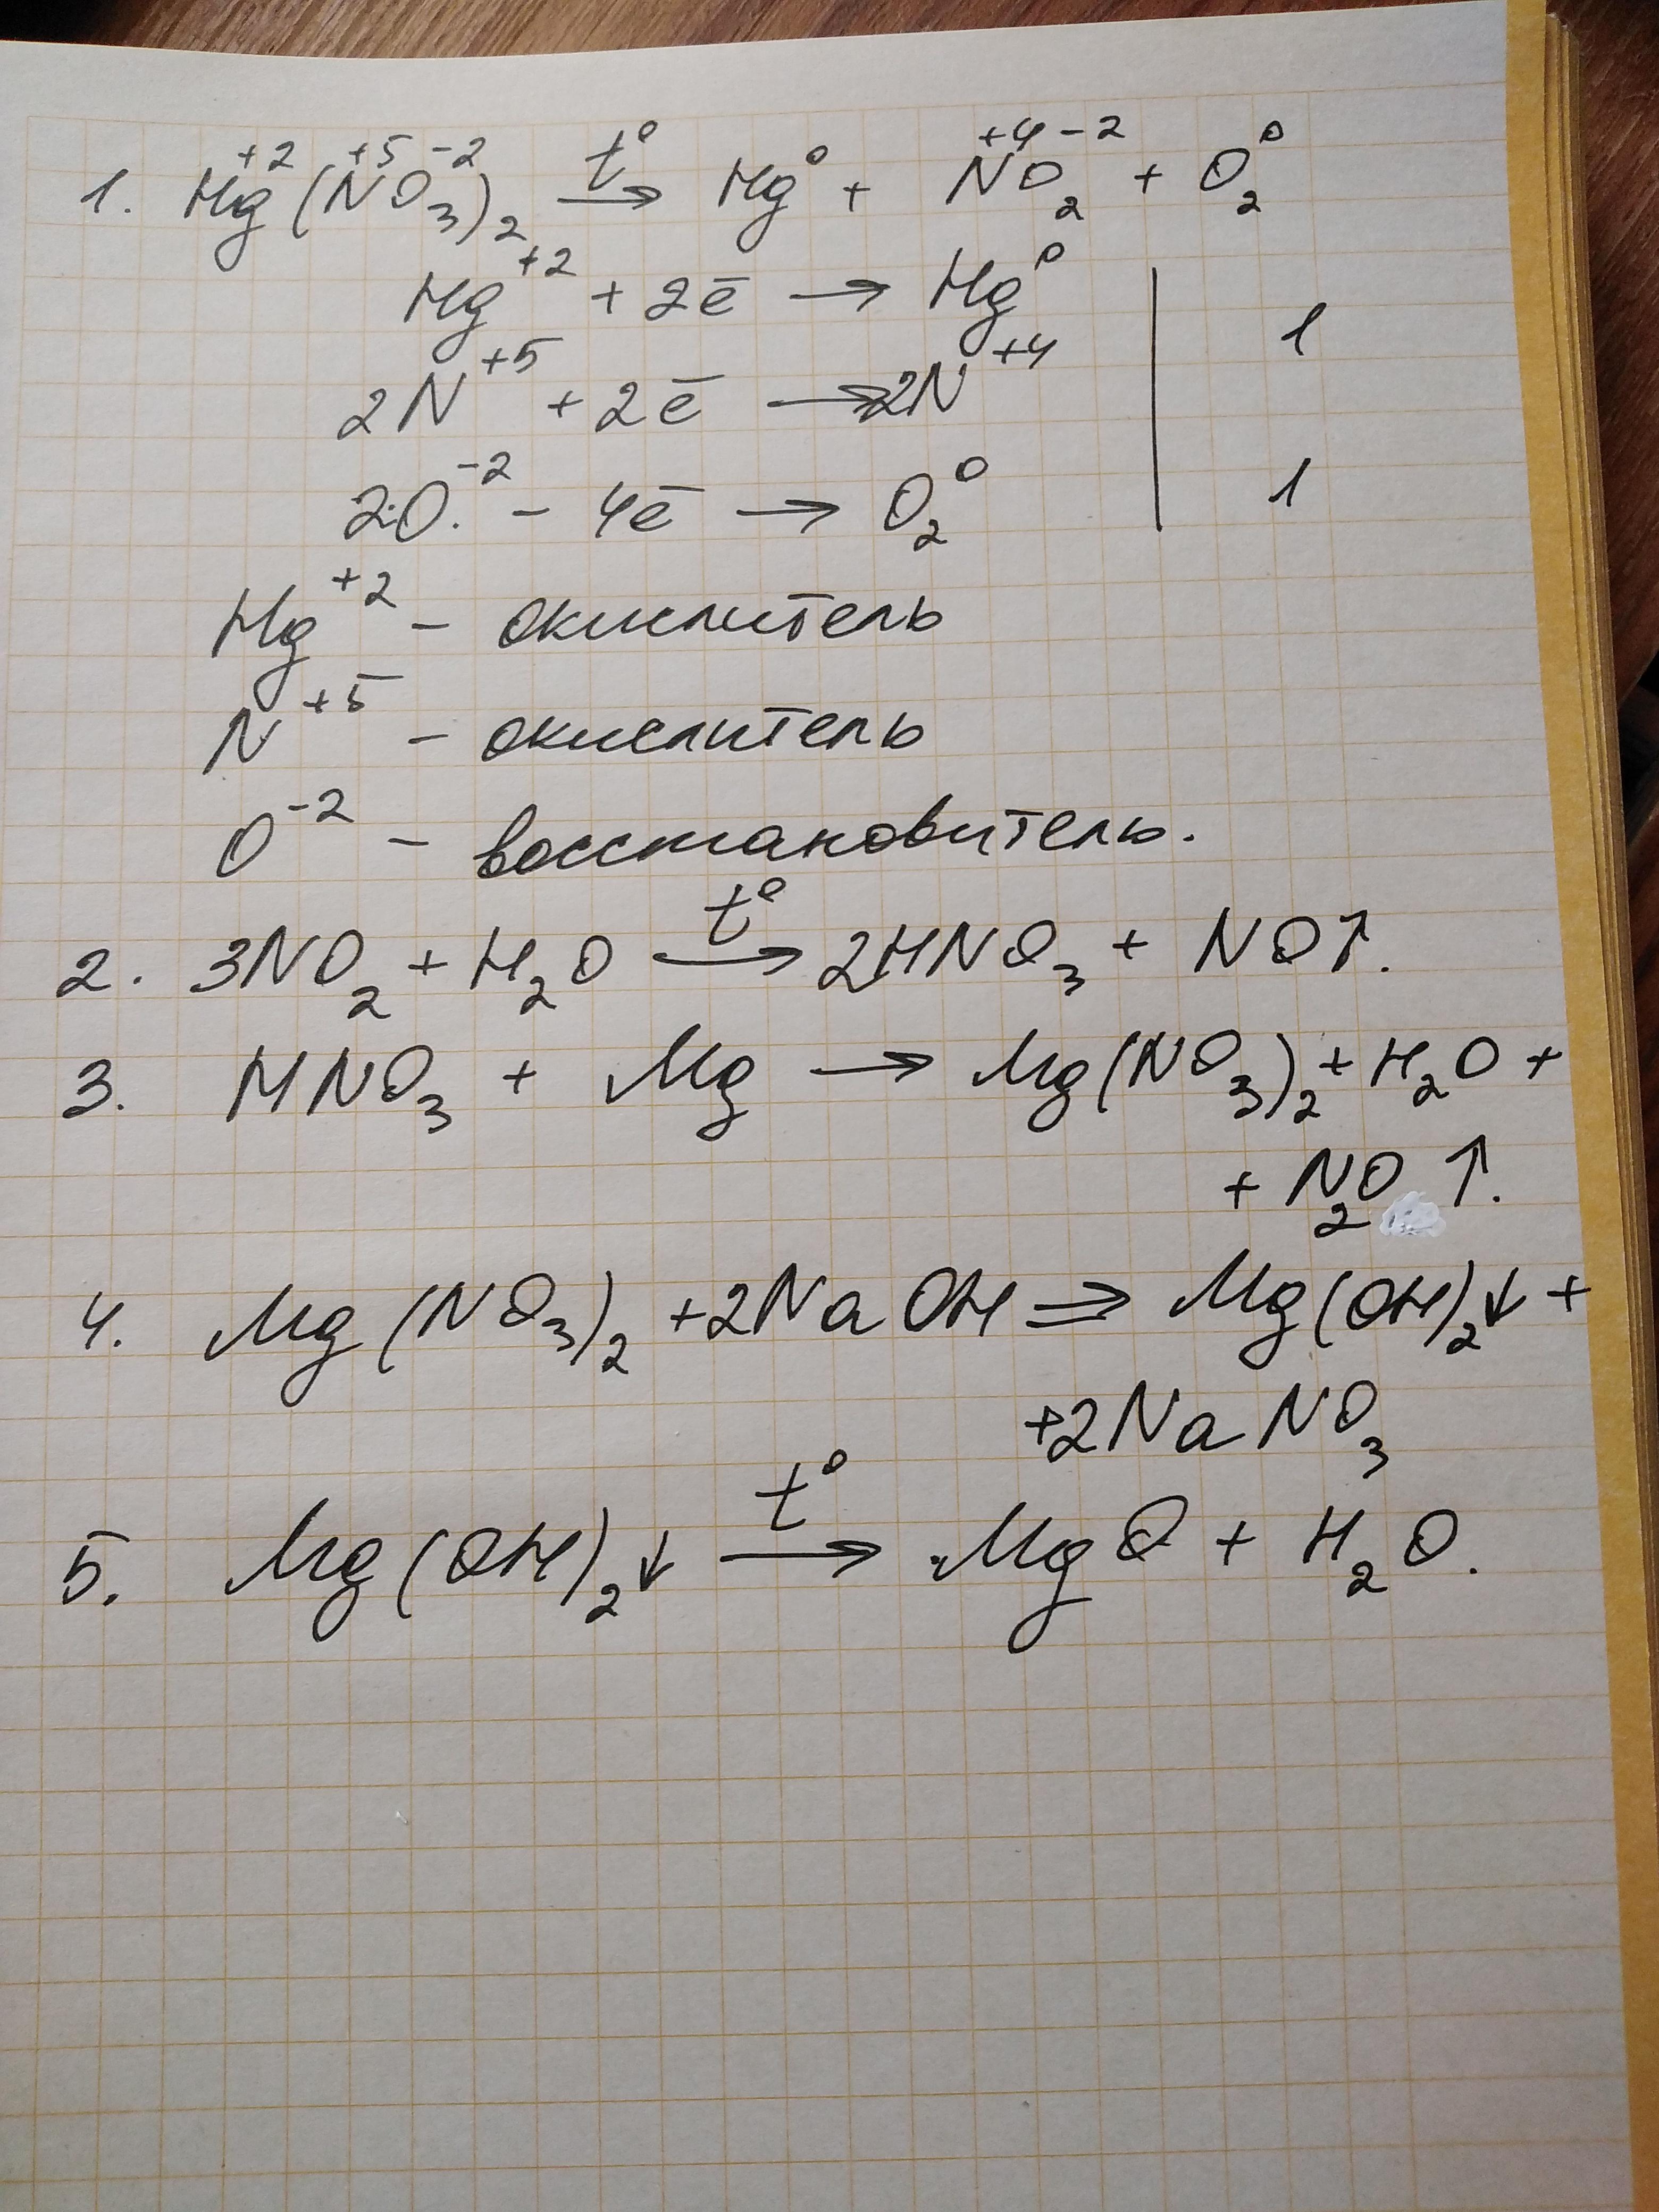 1. Hg⁺²(N⁺⁵O⁻²₃)₂ →t° Hg⁰ + N⁺⁴O⁻²₂ + O₂⁰
Hg⁺² + 2ē → Hg⁰ | 1
2N⁺⁵ + 2ē → 2N⁺⁴
2O⁻² - 4ē → O₂⁰ | 1
Hg⁺² - окислитель
N⁺⁵ - окислитель
O⁻² - восстановитель.
2. 3NO₂ + H₂O →t° 2HNO₃ + NO↑.
3. HNO₃ + Mg → Mg(NO₃)₂ + H₂O +
+ N₂O ↑.
4. Mg(NO₃)₂ + 2NaOH ⇒ Mg(OH)₂↓ +
+ 2NaNO₃
5. Mg(OH)₂↓ →t° MgO + H₂O.